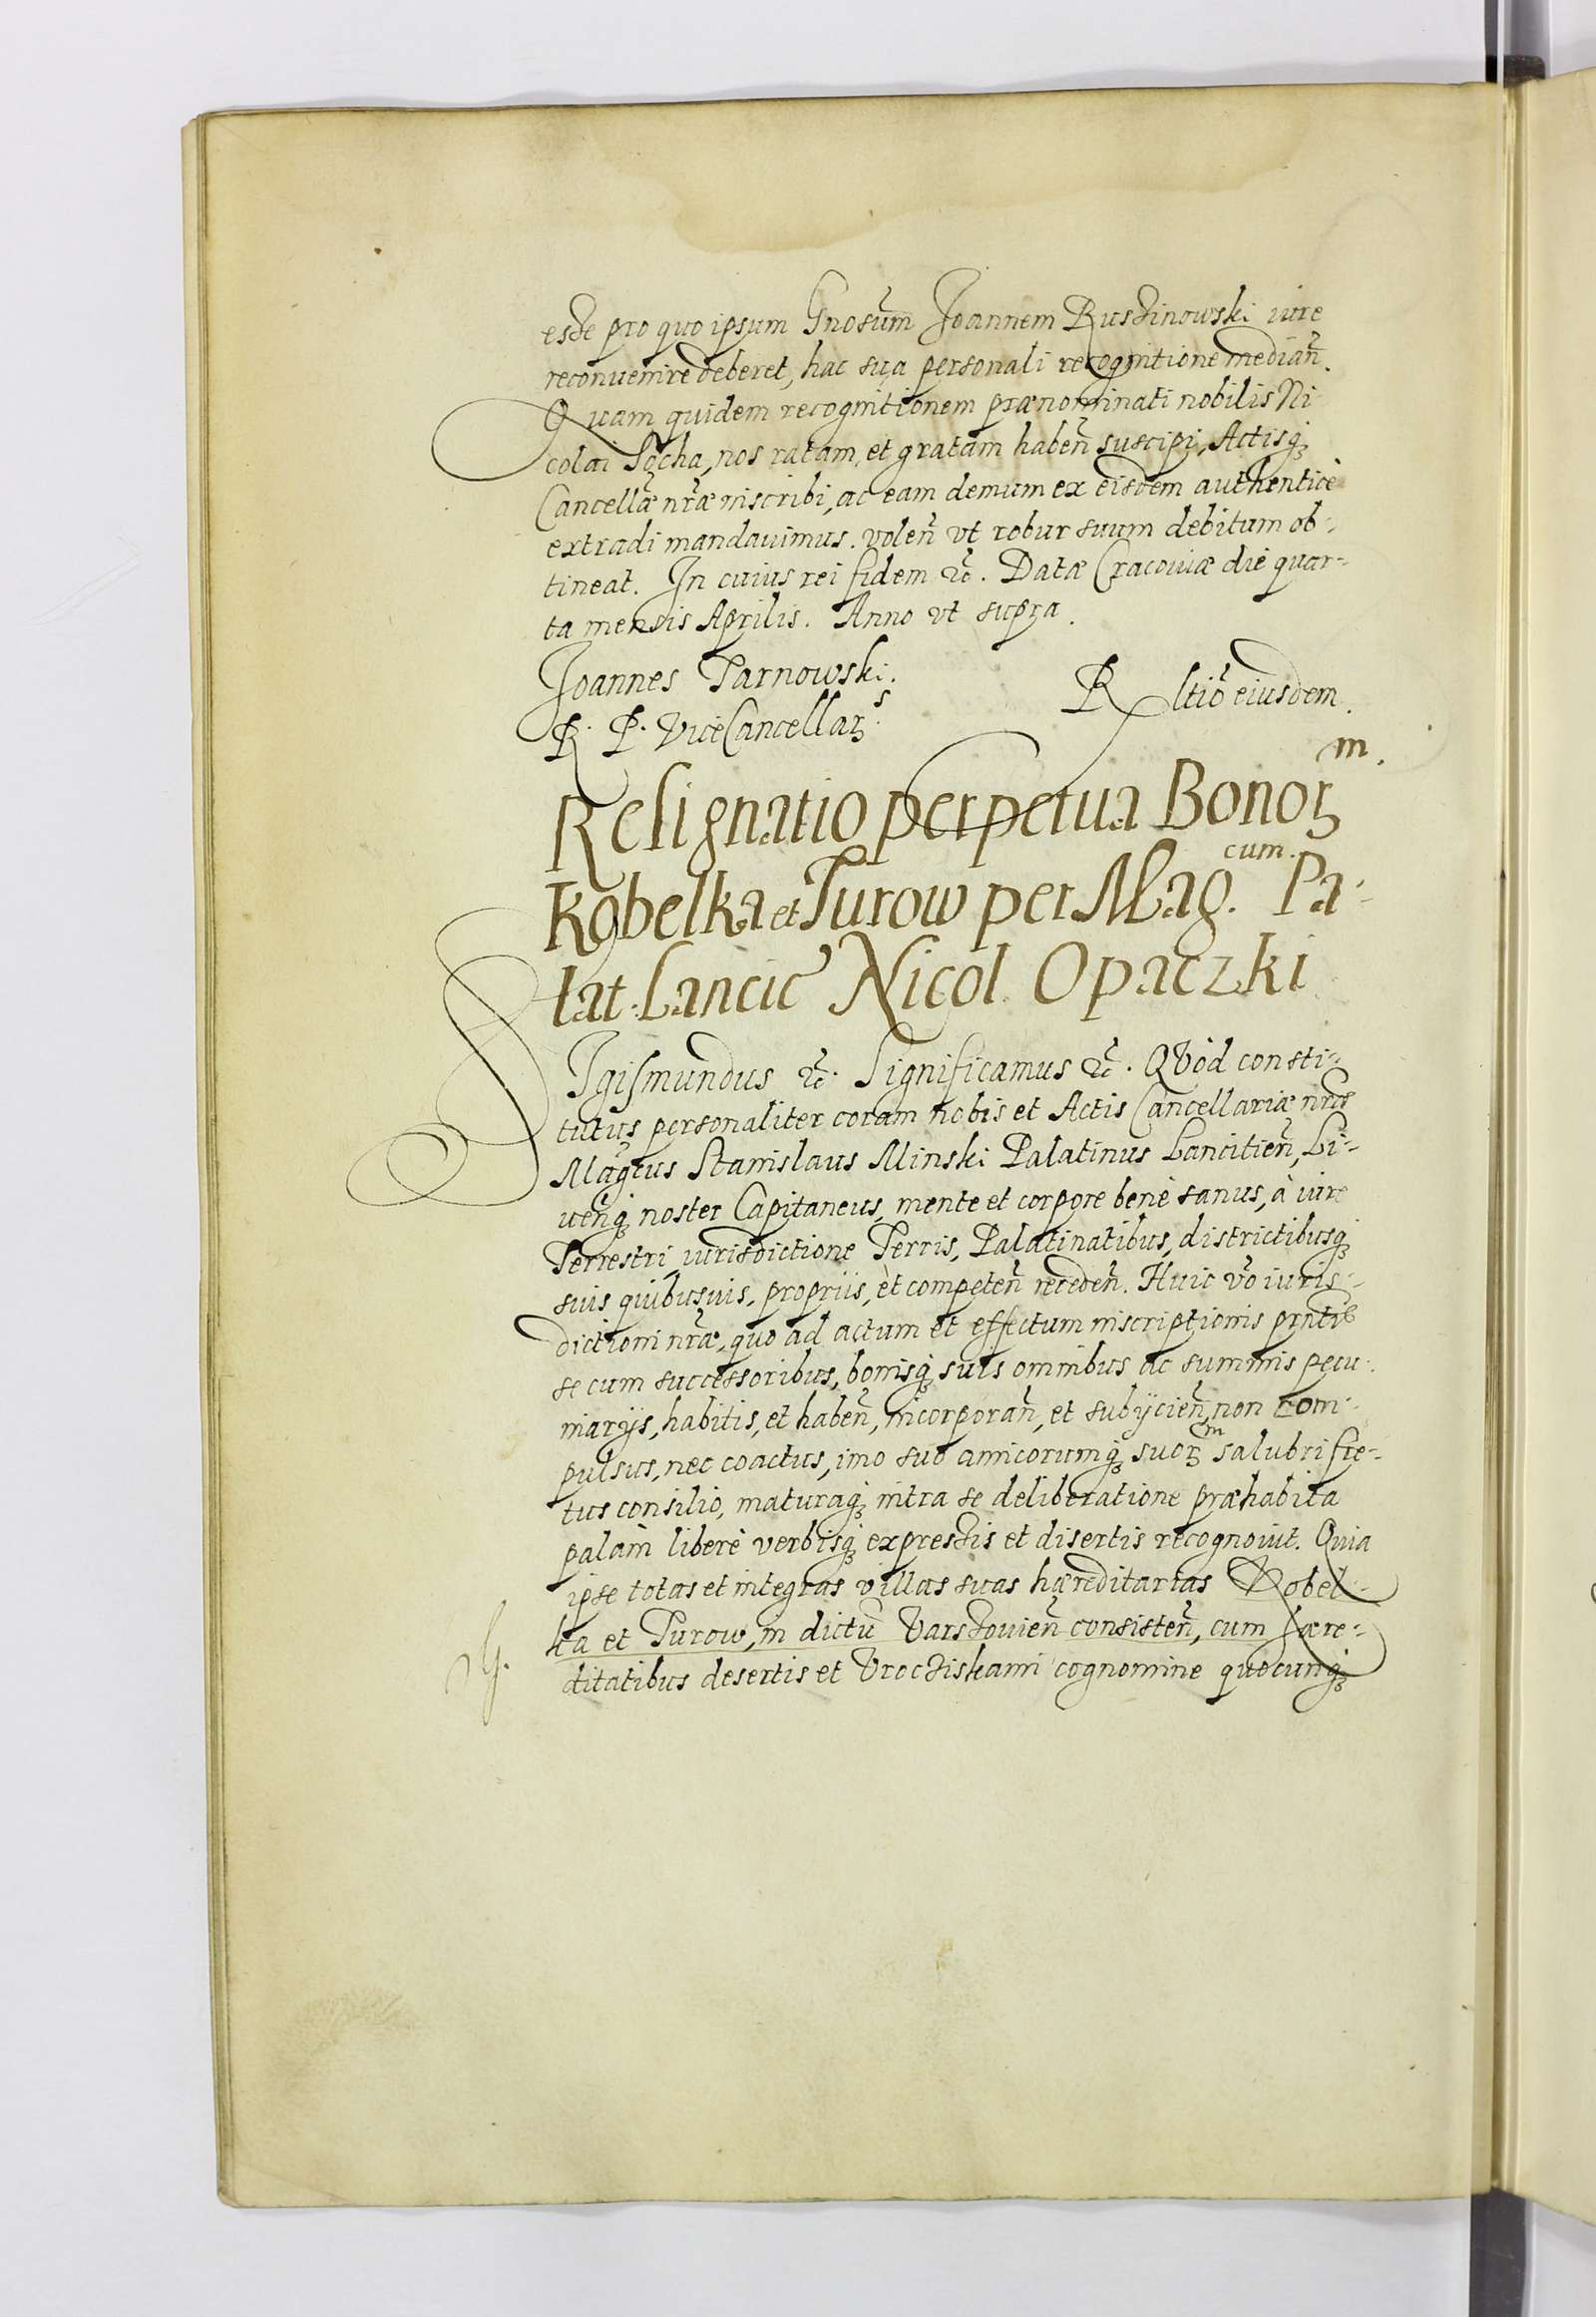 esse pro quo ipsum Gnosum̃ Joannem Russinowski iure
reconuenire deberet, hac sua personali recognitione median̄.
Quam quidem recognitionem prænominati nobilis Ni
colai Socha, nos ratam, et gratam haben̄ suscipi, Actisq̨
Cancellæ nr̃æ inscribi, ac eam demum ex eisdem authenticè
extradi mandauimus. volen̄ vt robur suum debitum ob-
tineat. In cuius rei fidem &c̃. Datæ Cracoviæ die quar-
ta mensis Aprilis. Anno vt supra.
Joannes Tarnowski.
R. P. ViceCancellarꝫ
R ltio᷉ eiusdem.
Resignatio perpetua Bonorꝫ m.
Kobelka et Turow per Mag. cum. Pa-
lat. Lancic̃ Nicol. Opaczki
SIgismundus &c̃. Significamus &c̃. Qvòd consti-
tutus personaliter coram nobis et Actis Cancellariæ nr̃is
Mag̃cus Stanislaus Minski Palatinus Lancitien̄, Li-
uenq̨ noster Capitaneus, mente et corpore benè sanus, à iure
Terrestri, iurisdictione Terris, Palatinatibus, districtibusq̨
suis quibusuis, propriis, et competen̄ receden̄. Huic vo᷉ iuris-
dictioni nr̃æ, quo ad actum et effectum inscriptionis pr̃ntis
se cum successoribus, bonisq̨ suis omnibus ac summis pecu-
niarijs, habitis, et haben̄, incorporan̄, et subijcien̄, non com-
pulsus, nec coactus, imo suo amicorumq̨ suorꝫ m salubri fre-
tus consilio, maturaq̨ intra se deliberatione præhabita
palàm liberè verbisq̨ expressis et disertis recognouit. Quia
ipse totas et integras villas suas hæreditarias Kobel-
ka et Turow, in dictũ Varssouien̄ consisten̄, cum hære-
ditatibus desertis et Vrocziskami cognomine quocunq̨